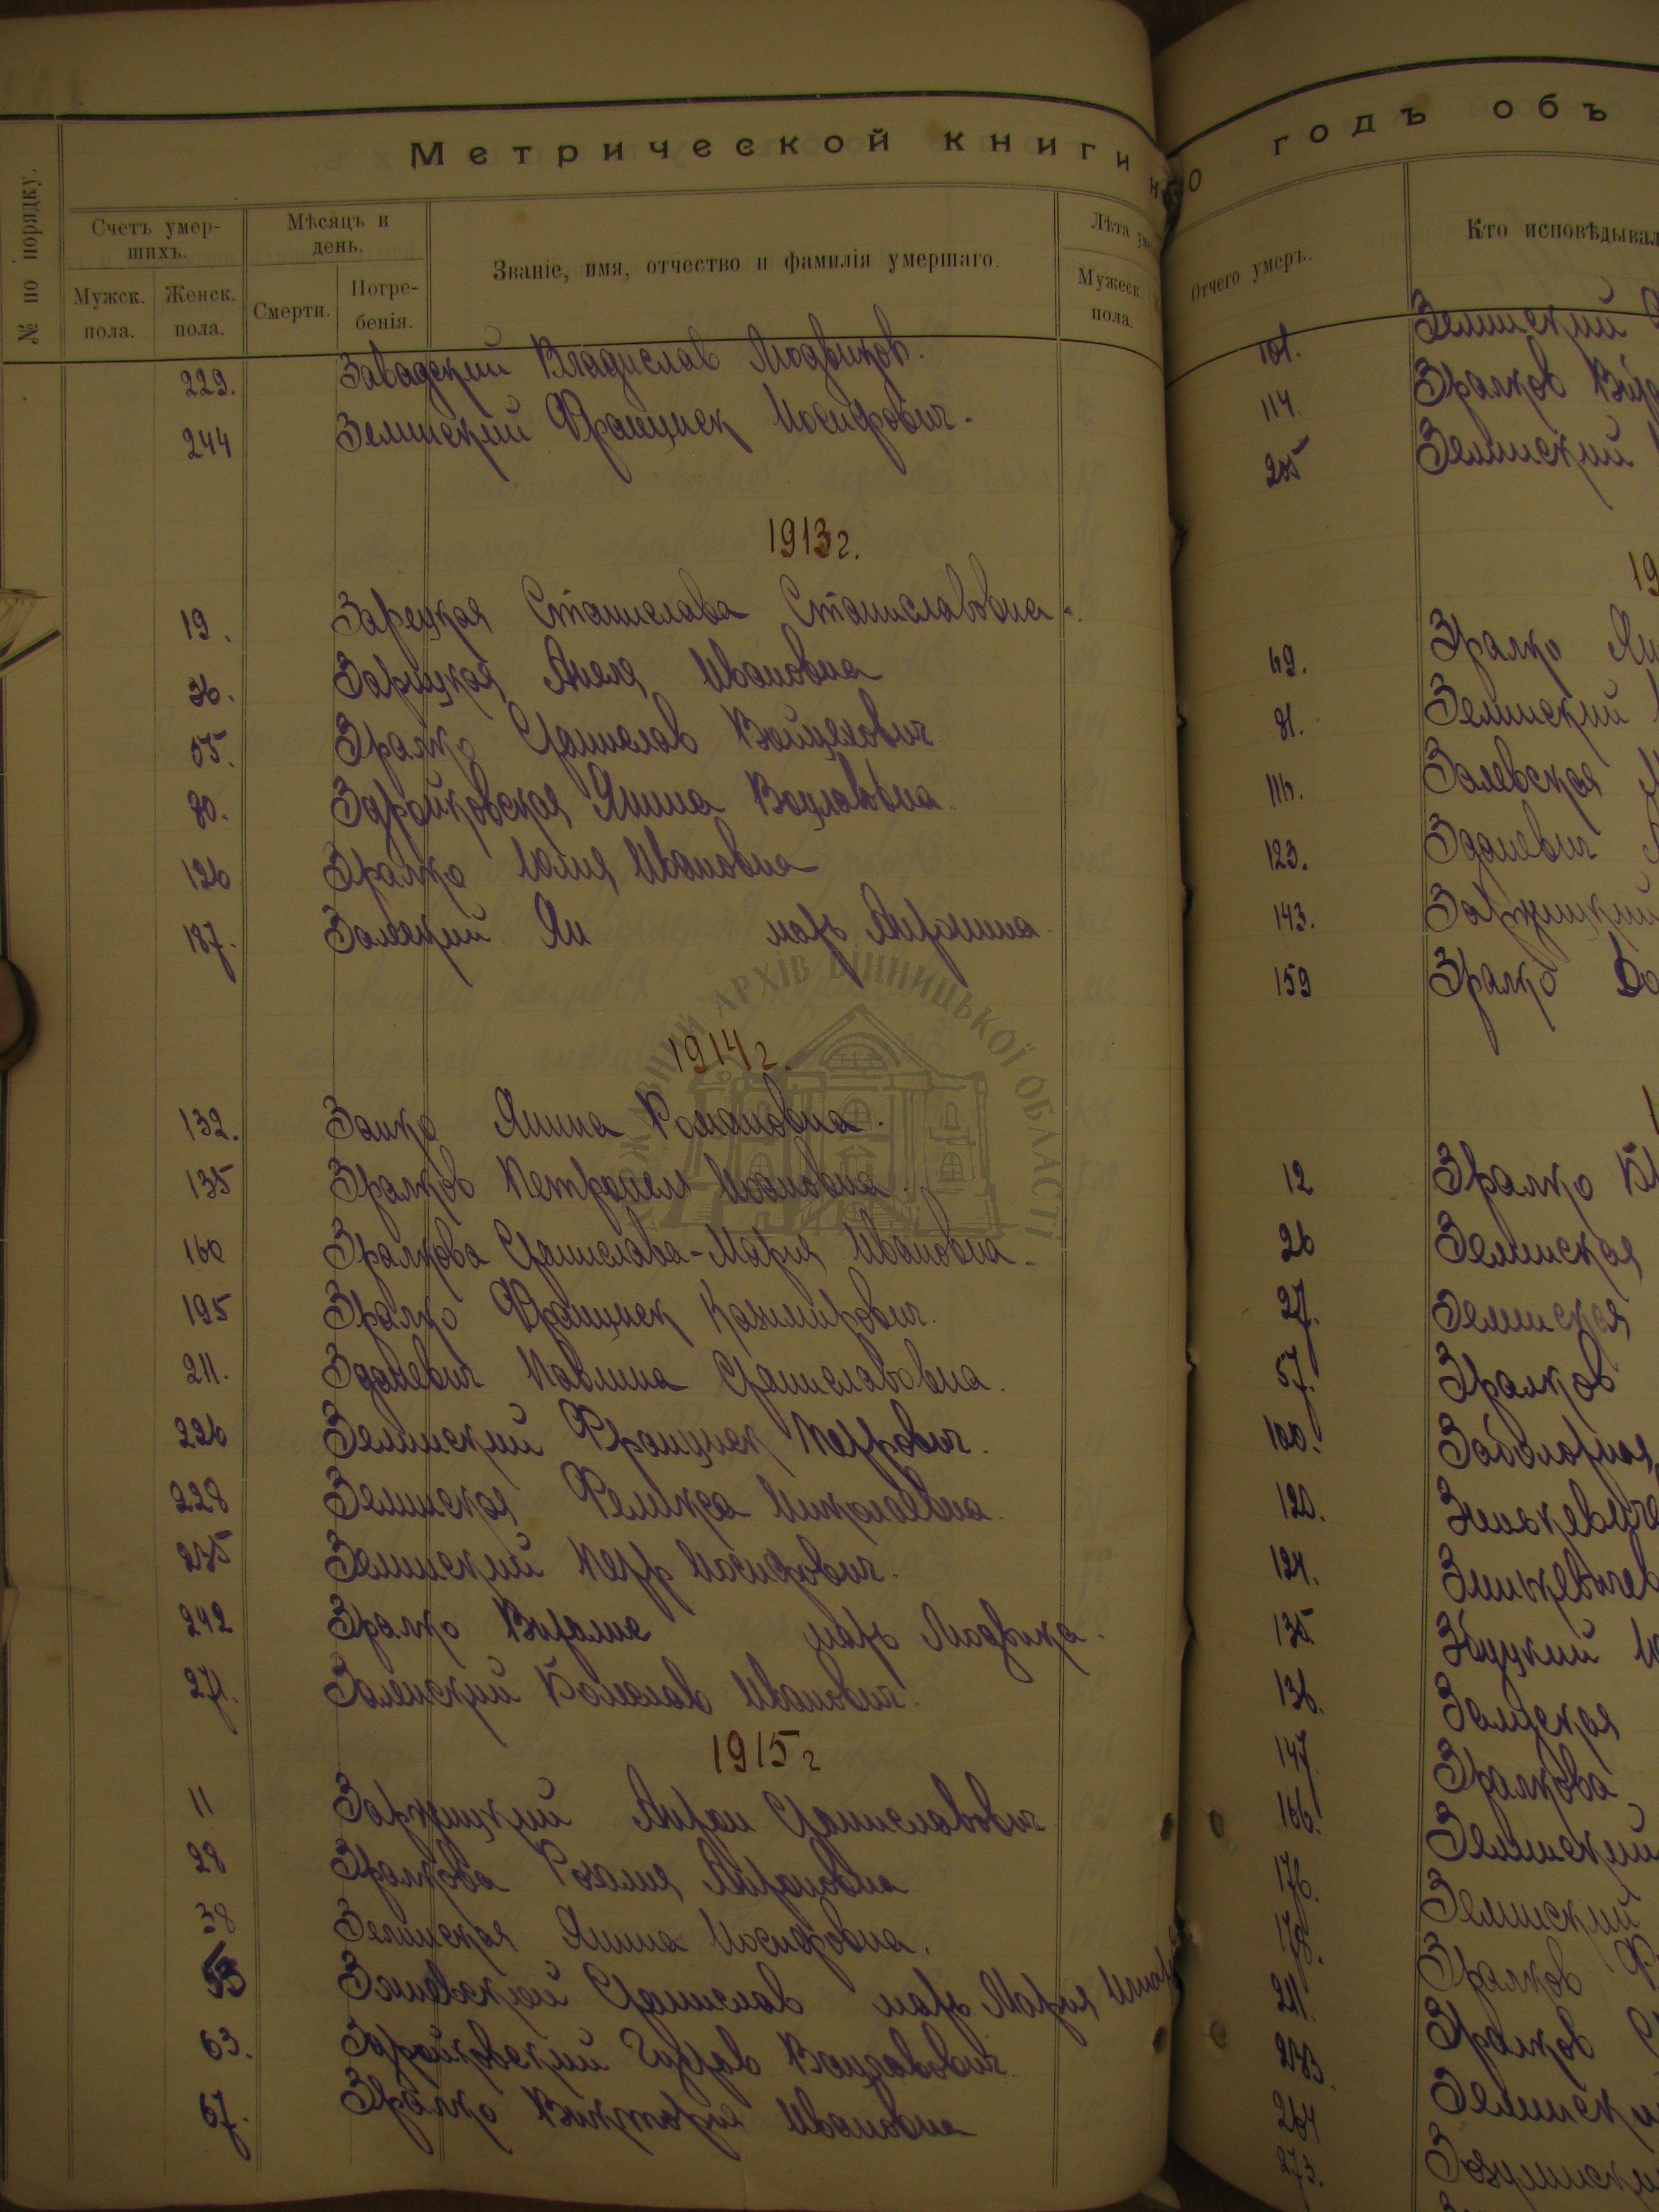 Метрической книги на
№ по порядку.
Счетъ умер-
шихъ.
Мужск.
пола.
Женск.
пола.
Мѣсяцъ и
день.
Смерти.
Погре-
бенія.
Званіе, имя, отчество и фамилія умершаго.
Лѣта
Мужеск.
пола.
229. Завадский Владислав Людвиков.
244 Зелинский Францишек Иосифович.
1913 г.
19. Зарецкая Станислава Станиславовна.
36. Зарицкая Анеля Ивановна
55. Зралко Станислав Войцехович
80. Здройковская Янина Вацлавовна
126 Зралко Юлия Ивановна
187. Ян мать Антонина
1914 г.
132. Заико Янина Романовна.
135 Зралков Петронеля Ивановна.
160 Зралкова Станислава-Мария Ивановна.
195 Зралко Францишек Казимирович.
211. Зданевич Павлина Станиславовна.
226 Зелинский Францишек Петрович.
228 Зелинская Феликса Николаевна.
235 Зелинский Петр Иосифович.
242 Зралко Виталис мать Людвика.
271. Заленский Болеслав Иванович.
1915 г
11 Заржицкий Антон Станиславович
28 Зралкова Розалия Антоновна
38 Зелинская Янина Иосифовна.
53 Станислав мать Мария
63. Здройковский Густав Вацлавович.
67. Зралко Виктория Ивановна
годъ объ
Отчего умеръ.
Кто исповѣдывал
101. Зелинский
114. Зралков
205 Зелинский
19
69. Зралко
81. Зелинский
116. Залевская
123. Зданевич
143. Заржицкий
159 Зралко
12 Зралко
26 Зелинская
27. Зелинская
57. Зралков
100. Заболотная
120. Зинькевич
124. Зинкевичев
135.
136.
147. Зралкова
166. Зелинский
176. Зелинский
178. Зралков
211. Зралков
233. Зелинский
264
273.
АРХІВ ВІННИЦЬКОЇ ОБЛАСТІ